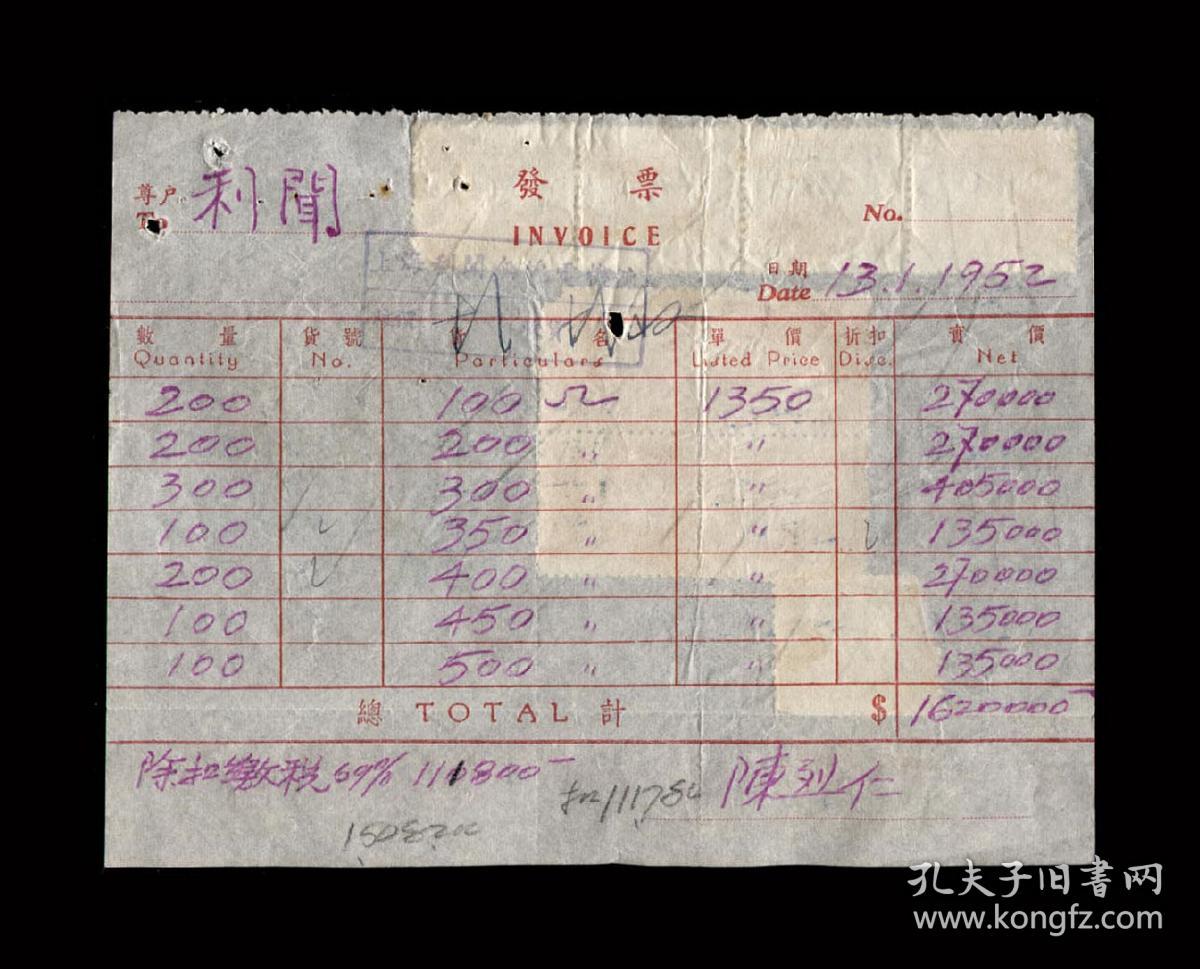 發 票
尊户 利聞
To
INVOICE
No.
日期
Date 13.1.1952
數量 貨號 貨名 單價 折扣 實價
Quantity No. Particulars Listed Price Disc. Net
200 100 Ω 1350 270000
200 200 〃 〃 270000
300 300 〃 〃 405000
100 350 〃 〃 135000
200 400 〃 〃 270000
100 450 〃 〃 135000
100 500 〃 〃 135000
總 TOTAL 計 $ 1620000
除扣繳稅 陳列仁
孔夫子旧書网
www.kongfz.com